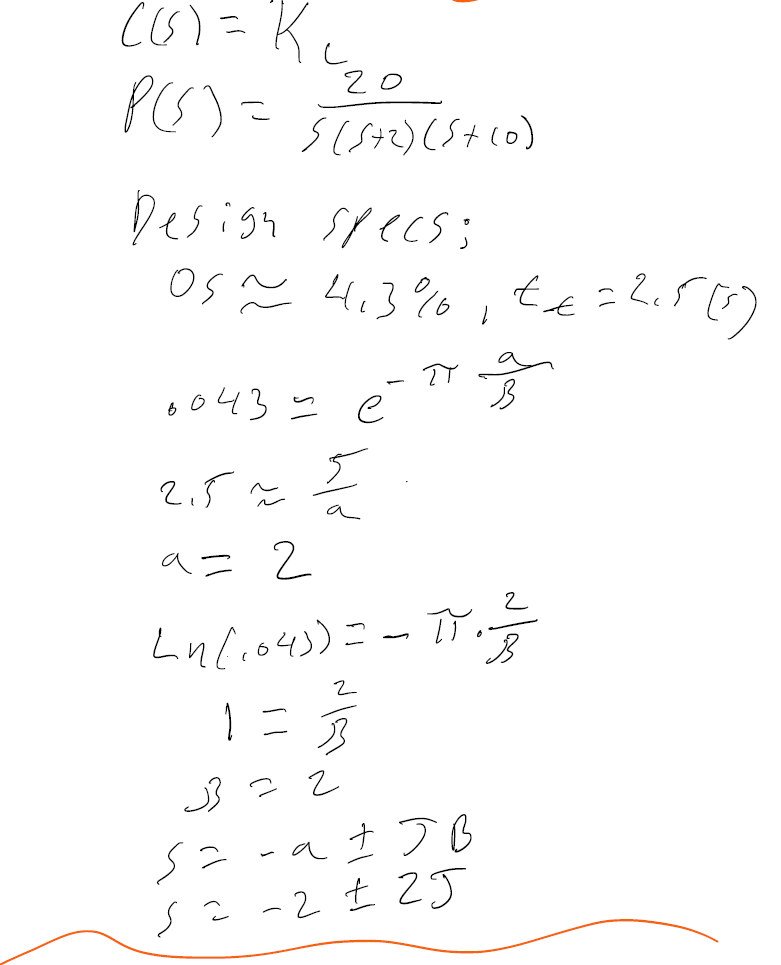 C(s) = K_c
P(s) = 20 / s(s+2)(s+10)
Design specs;
OS ≈ 4.3%, t_t = 2.5(s)
.043 = e^{-π a/β}
2.5 ≈ 5/a
a = 2
Ln(.043) = -π · 2/β
1 = 2/β
β = 2
s = -a ± Jβ
s = -2 ± 2J